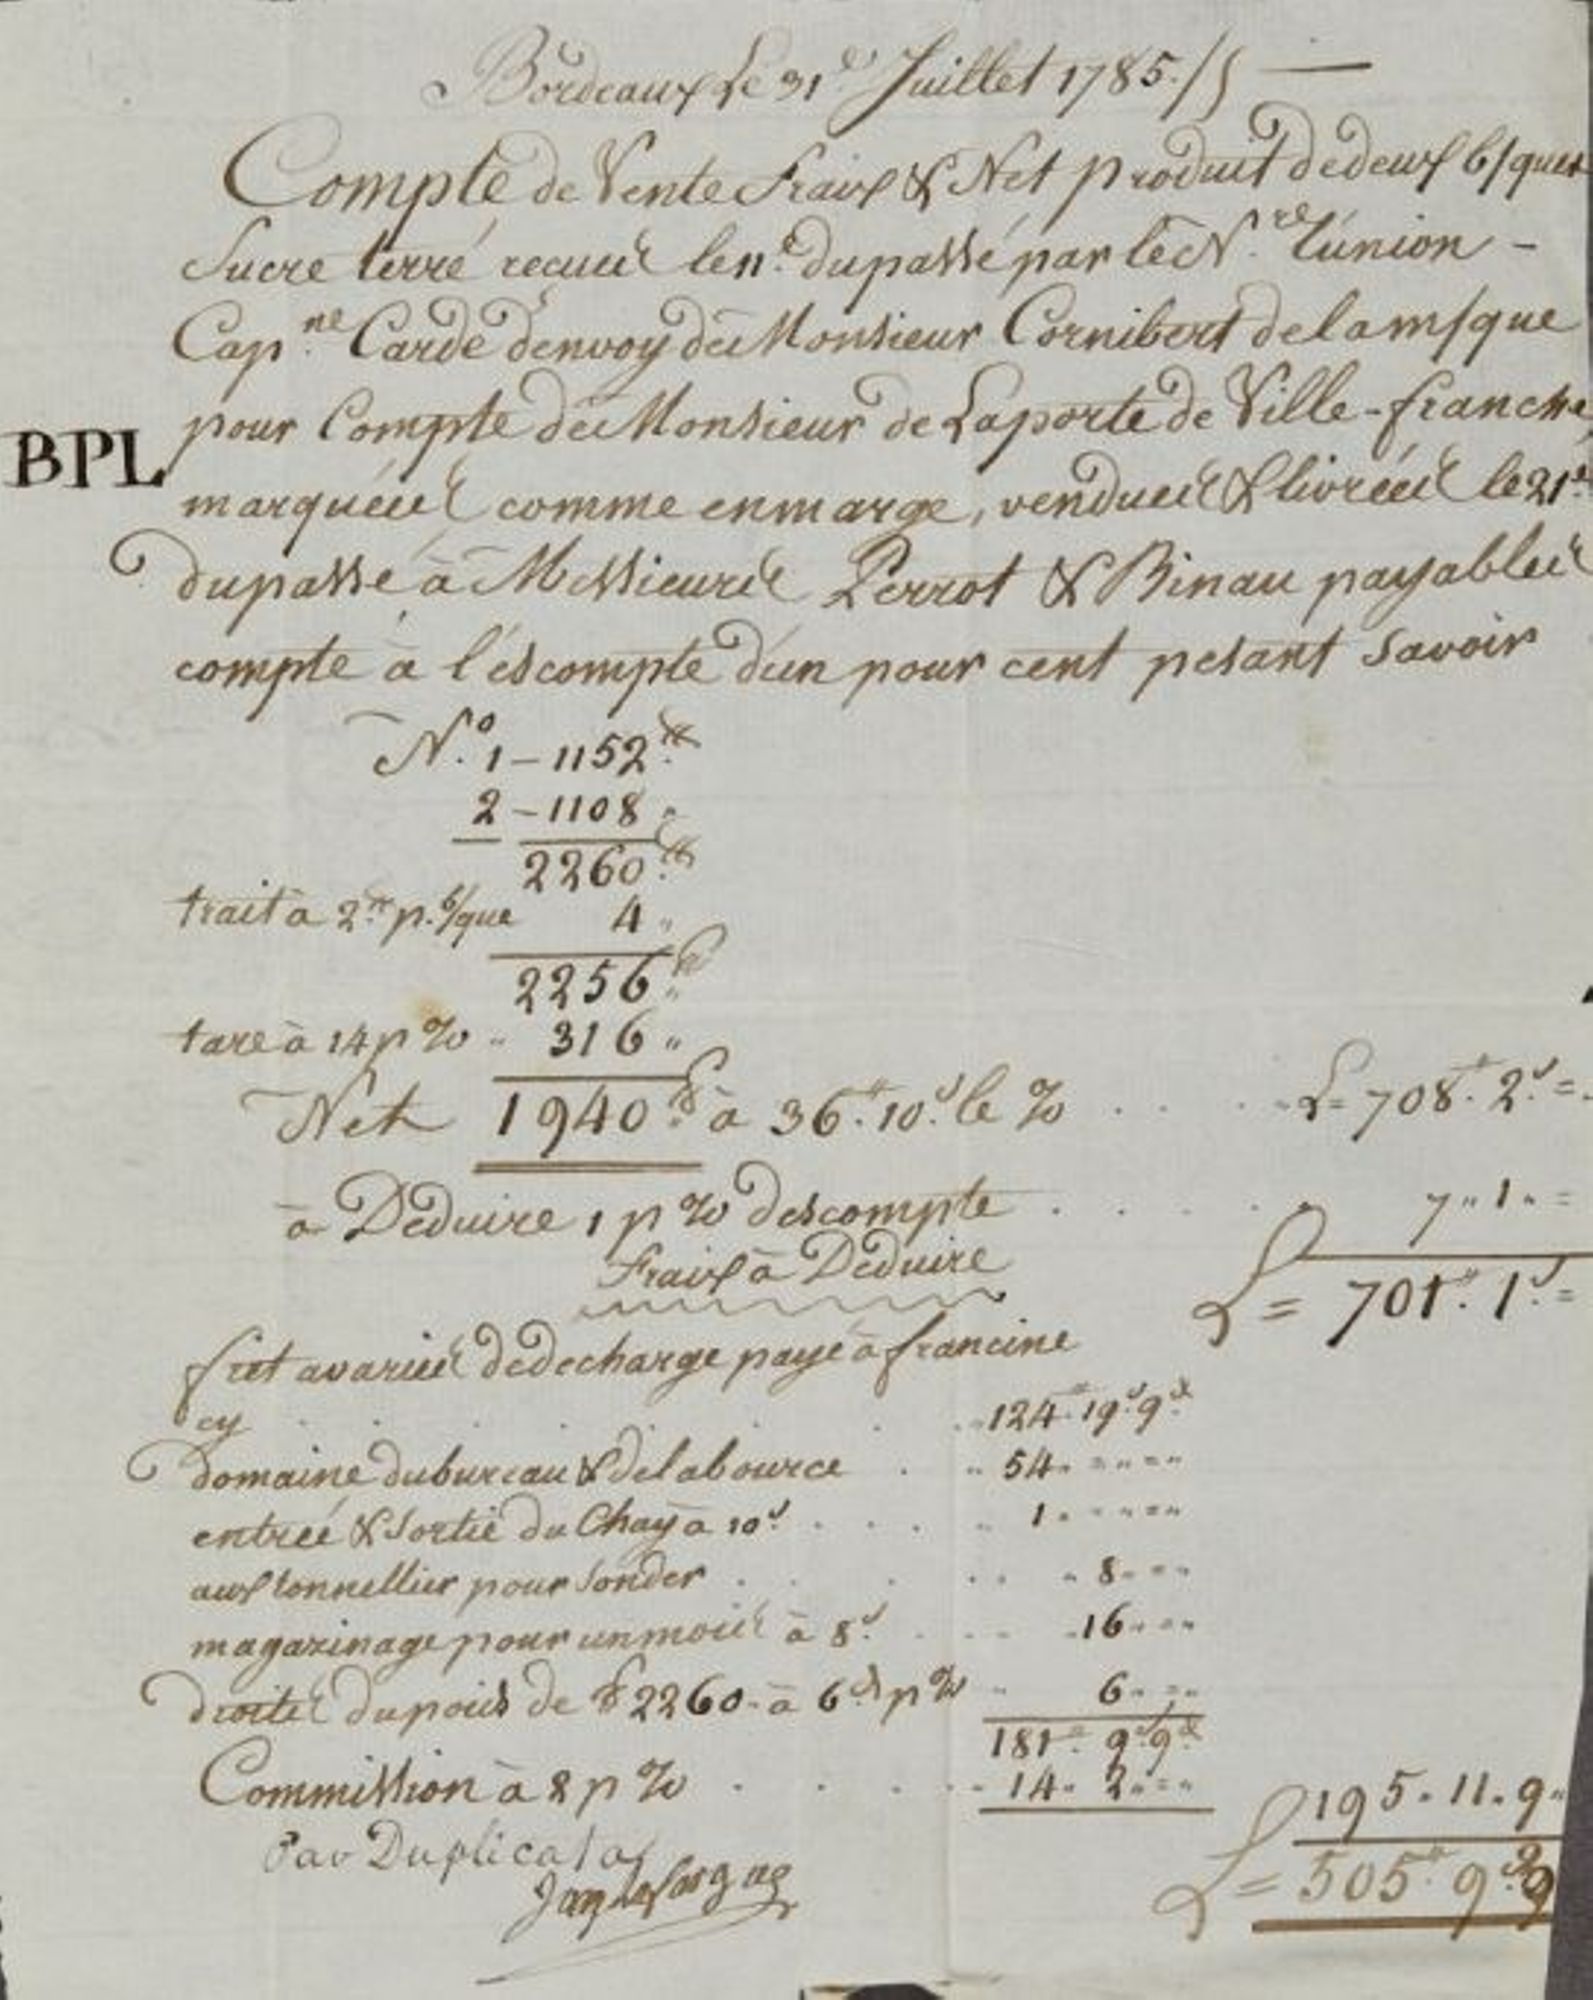 Bordeaux Le 31e Juillet 1785.//
Compte de Vente Fraix & Net produit de deux b/ques
Sucre terré recües le 11e. du passé par le N.re L'union -
Cap.ne Carde d'envoy de Monsieur Cornibert de la m/que
pour Compte de Monsieur de Laporte de Ville-franche,
BPL
marquées comme en marge, vendues & livrées le 21e.
du passé à Messieurs Perrot & Binau payables
compte à l'escompte d'un pour cent pesant Savoir
N.o 1 - 1152 ℔
2 - 1108 "
2260 ℔
trait a 2 ℔ p. b/que 4 "
2256 ℔
tare à 14 p % " 316 "
Net 1940 ℔ à 36.# 10.s le % . . . . £= 708.# 2.s =
à Deduire 1 p % d'escompte . . . . . 7 " 1 " =
Fraix à Deduire
£ = 701.# 1.s =
fret avaries de decharge payé à francine
cy . . . . 124.# 19.s 9.d
domaine du bureau & de la bource . . 54. " " " "
entrée & Sortie du Chay à 10.s . . . . 1. " " " "
aux tonnellier pour Sonder . . . . " 8 " " "
magazinage pour un mois à 8.s . . . . 16 " " "
droites du poids de ℔ 2260 - à 6.ds p % " 6 " " "
181.# 9.s 9.d
Commission à 2 p % . . . . . 14. 2. " = "
195. 11. 9 "
Par Duplicata
£ = 505.# 9.s 9